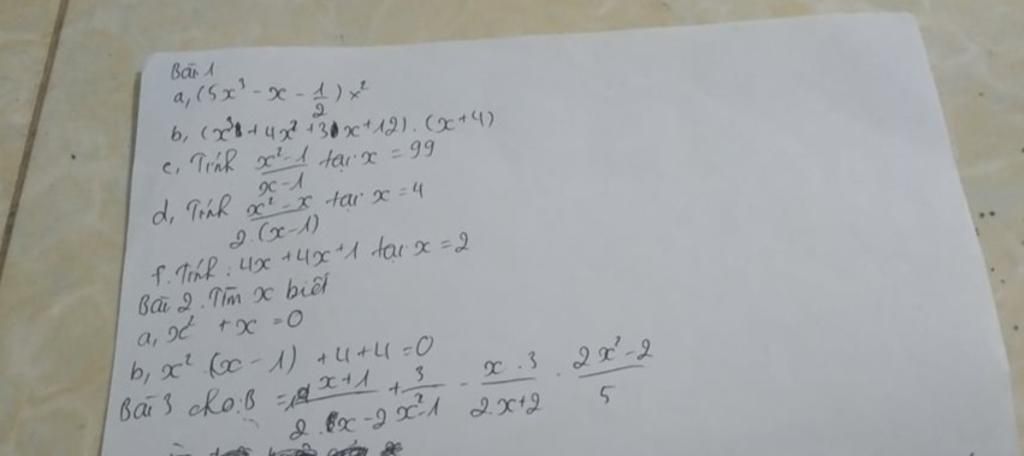 Bài 1
a, (5x³ - x - 1/2) x²
b, (x³ + 4x² + 3x + 12) . (x+4)
c, Tính (x²-1)/(x-1) tại x = 99
d, Tính (x² - x)/(2.(x-1)) tại x = 4
f. Tính : 4x + 4x + 1 tại x = 2
Bài 2. Tìm x biết
a, x² + x = 0
b, x² (x - 1) + 4 + 4 = 0
Bài 3 cho: B = (x+1)/(2x-2) + 3/(x²-1) - (x . 3)/(2x+2) . (2x²-2)/5